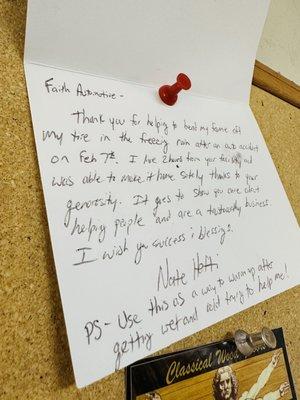 Faith Automotive -
Thank you for helping to bend my frame off
my tire in the freezing rain after an auto accident
on Feb 7th. I live 2 hours from your and
was able to make it home safely thanks to your
generosity. It goes to show you care about
helping people and are a trustworthy business.
I wish you success & blessings.
Nate
PS- Use this as a way to warm up after
getting wet and cold trying to help me!
Classical Wood